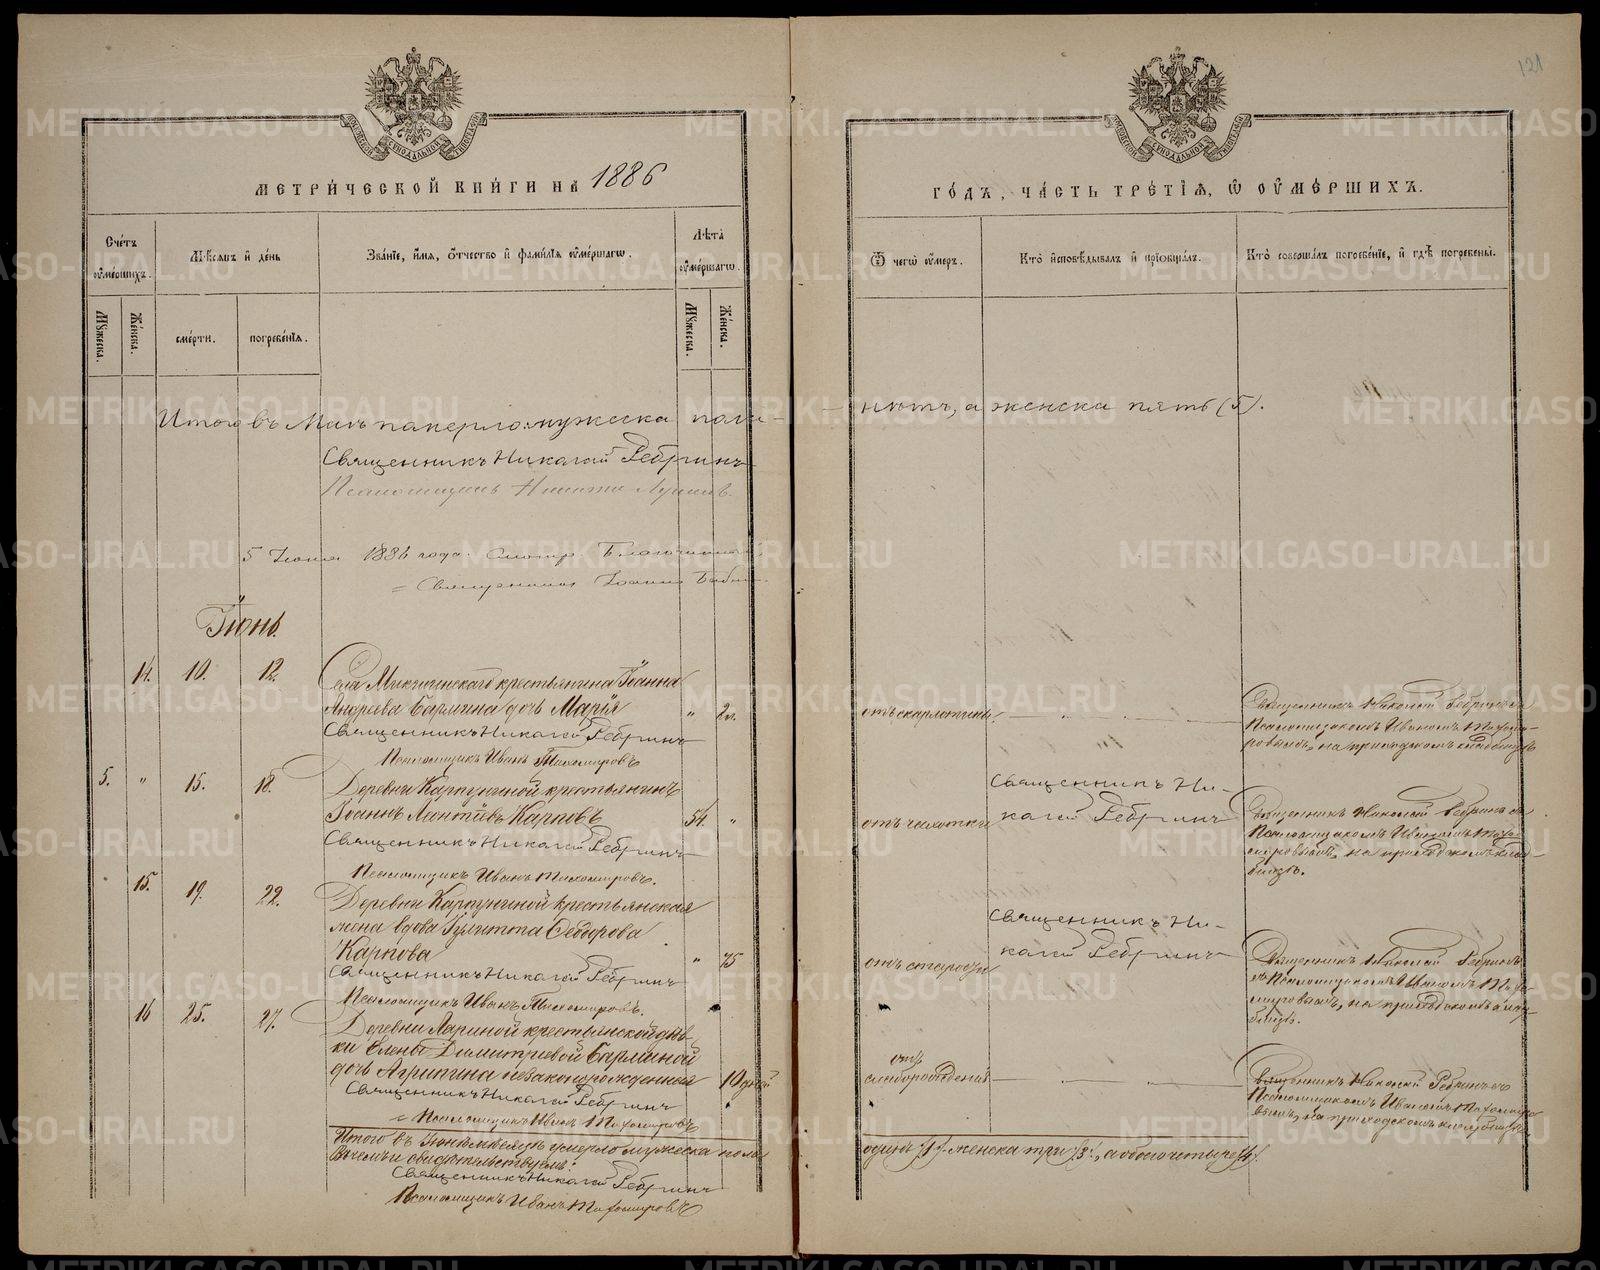 121
МЕТРИ́ЧЕСКОЙ КНИ́ГИ НА 1886
ГО́ДЪ, ЧА́СТЬ ТРЕ́ТІѦ, Ѽ ОУ҆МЕ́РШИХЪ.
Сче́тъ оу҆ме́ршихъ.
Мѣ́сяцъ и҆ де́нь
Зва́ніе, и҆́мя, о҆́тчество и҆ фами́лія оу҆ме́ршагѡ.
Лѣ́та оу҆ме́ршагѡ.
Ѿ чегѡ̀ оу҆́меръ.
Кто̀ и҆сповѣ́дывалъ и҆ пріобща́лъ.
Кто̀ соверша́лъ погребе́ніе, и҆ гдѣ̀ погребены̀.
Му́жеска.
Же́нска.
сме́рти.
погребе́нія.
Му́жеска.
Же́нска.
Итого въ Маѣ померло: мужеска пола – нѣтъ, а женска пять (5).
Священникъ Николай Ребринъ
Псаломщикъ Никита
5 Іюня 1886 года. Смотр. Благочинный
= Священникъ Іоаннъ
Іюнь.
14. 10. 12.
Села Микшинскаго крестьянина Іоанна
Андреева Бармина дочь Марія " 2 г.
Священникъ Николай Ребринъ
Псаломщикъ Иванъ Тихомировъ
отъ скарлатины
Священникъ Николай Ребринъ съ
Псаломщикомъ Иваномъ Тихоми-
ровымъ, на приходскомъ кладбищѣ
5. " 15. 18.
Деревни Карпушиной крестьянинъ
Іоаннъ Леонтіевъ Карповъ 54. "
Священникъ Николай Ребринъ
Псаломщикъ Иванъ Тихомировъ.
отъ чахотки
Священникъ Ни-
колай Ребринъ
Священникъ Николай Ребринъ съ
Псаломщикомъ Иваномъ Тихо-
мировымъ, на приходскомъ клад-
бищѣ.
15. 19. 22.
Деревни Карпушиной крестьянская
жена вдова Іулитта Ѳедорова
Карпова " 75
Священникъ Николай Ребринъ
Псаломщикъ Иванъ Тихомировъ.
отъ старости
Священникъ Ни-
колай Ребринъ
Священникъ Николай Ребринъ
съ Псаломщикомъ Иваномъ Тихо-
мировымъ, на приходскомъ клад-
бищѣ.
16 25. 27.
Деревни Лариной крестьянской дѣв-
ки Елены Димитріевой Барминой
дочь Агрипина незаконорожденная 10 дней
Священникъ Николай Ребринъ
Псаломщикъ Иванъ Тихомировъ
отъ
слаборожденія
Священникъ Николай Ребринъ съ
Псаломщикомъ Иваномъ Тихомиро-
вымъ, на приходскомъ кладбищѣ.
Итого въ Іюнѣ мѣсяцѣ умерло мужеска пола
одинъ /1/, женска три /3/, а обоего четыре /4/.
В чемъ и свидѣтельствуемъ:
Священникъ Николай Ребринъ
Псаломщикъ Иванъ Тихомировъ
METRIKI.GASO-URAL.RU